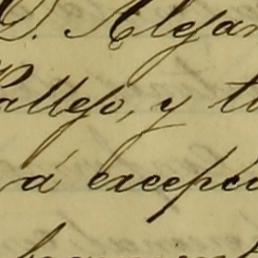 D. Alejan
Vallejo, y tu
á excepci